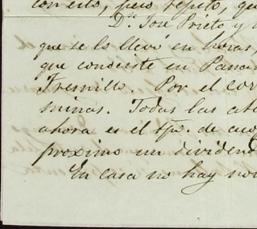 con esto, pero repito, que
Dn. José Prieto y
que se lo lleve en horas,
que consiste en Pana
Fresnillo. Por el cor
minas. Todas las ate
ahora es el tpo. de
proximo un dividend
En casa no hay nov